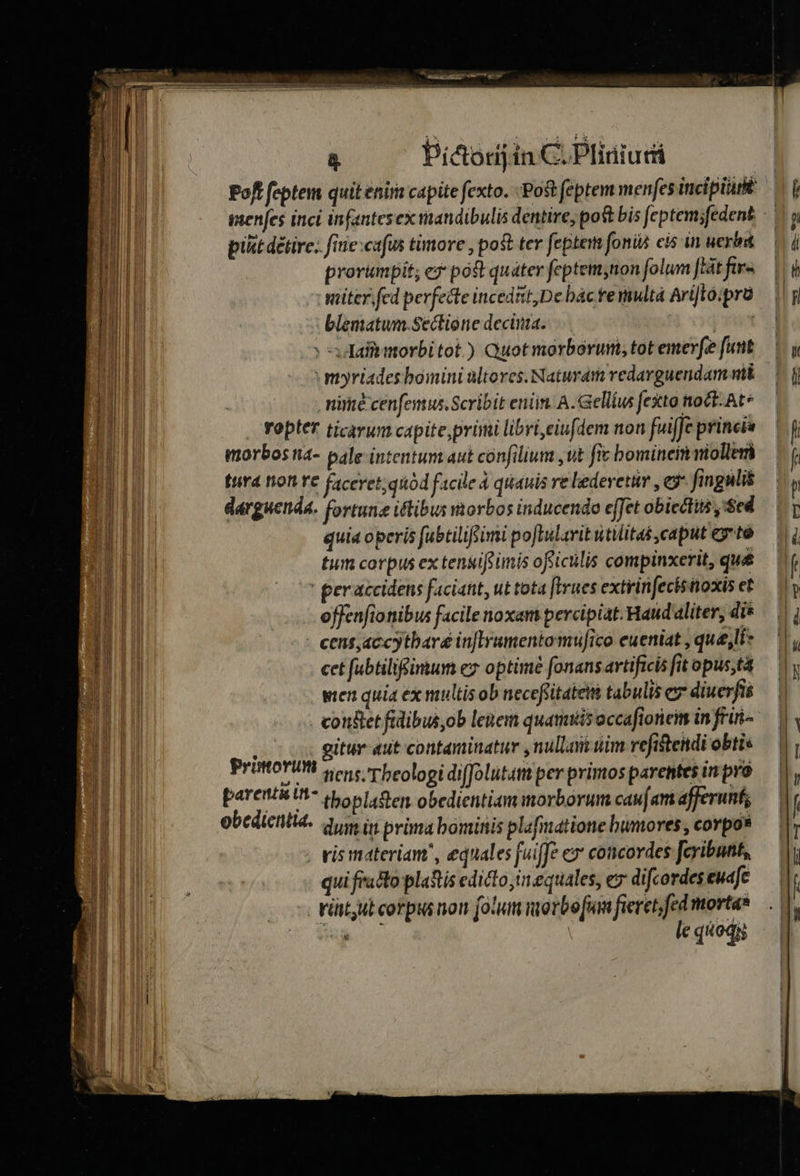 4 Pictorij in C. Plinium
Post septem quit enim capite sexto. Post septem menses incipiunt
menses inci infantes ex mandibulis dentire, post bis septem, sedent
piũt dẽtire. sine casus timore, post ter septem sonus eis in uerba
prorumpit, & post quater septem, non solum stãt fir-
miter, sed perfecte incedũt, De hac re multa Aristo. pro
blematum. Sectione decima.
Iam morbi tot.) Quot morborum, tot emersę sunt
myriades homini ultores. Naturam redarguendam mi
nimè censemus. Scribit enim A. Gellius sexto noct. At-
ropter ticarum capite, primi libri, eiusdem non fuisse princi-
morbos na- pale intentum aut consilium, ut sic hominem mollem
tura non re faceret, quòd facile à quauis re lęderetur, & singulis
darguenda. fortunę ictibus morbos inducendo esset obiectus, Sed
quia operis subtilissimi postularit utilitas, caput & to
tum corpus ex tenuissimis ossiculis compinxerit, quæ
per accidens faciant, ut tota strues extrinsecis noxis et
offensionibus facile noxam percipiat. Haud aliter, di-
cens, ac cytharę instrumento musico eueniat, quę, li-
cet subtilissimum & optimè sonans artificis sit opus, ta
men quia ex multis ob necessitatem tabulis & diuersis
constet fidibus, ob leuem quamuis occasionem in frin-
gitur aut contaminatur, nullam uim resistendi obti-
Primorum nens. Theologi dissolutam per primos parentes in pro
parentũ in- thoplasten obedientiam morborum causam afferunt,
obedientia. dum in prima hominis plasmatione humores, corpo-
ris materiam, ęquales fuisse & concordes scribunt,
qui fracto plastis edicto, inęquales, & discordes euase
rint, ut corpus non solum morbosum fieret, sed morta-
le quoq;